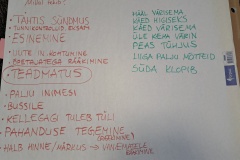 • TÄHTIS SÜNDMUS
TUNNIKONTROLL, EKSAM
• ESINEMINE
• UUTE IN. KOHTUMINE
RÄÄKIMINE
• TEADMATUS
• PALJU INIMESI
• BUSSILE
• KELLEGAGI TULEB TÜLI
• PAHANDUSE TEGEMINE
• HALB HINNE / MÄRKUS → VANEMATELE
HÄÄL VÄRISEMA
KÄED HIGISEKS
KÄED VÄRISEMA
ÜLE KEHA VÄRIN
PEAS TÜHJUS
LIIGA PALJU MÕTTEID
SÜDA KLOPIB